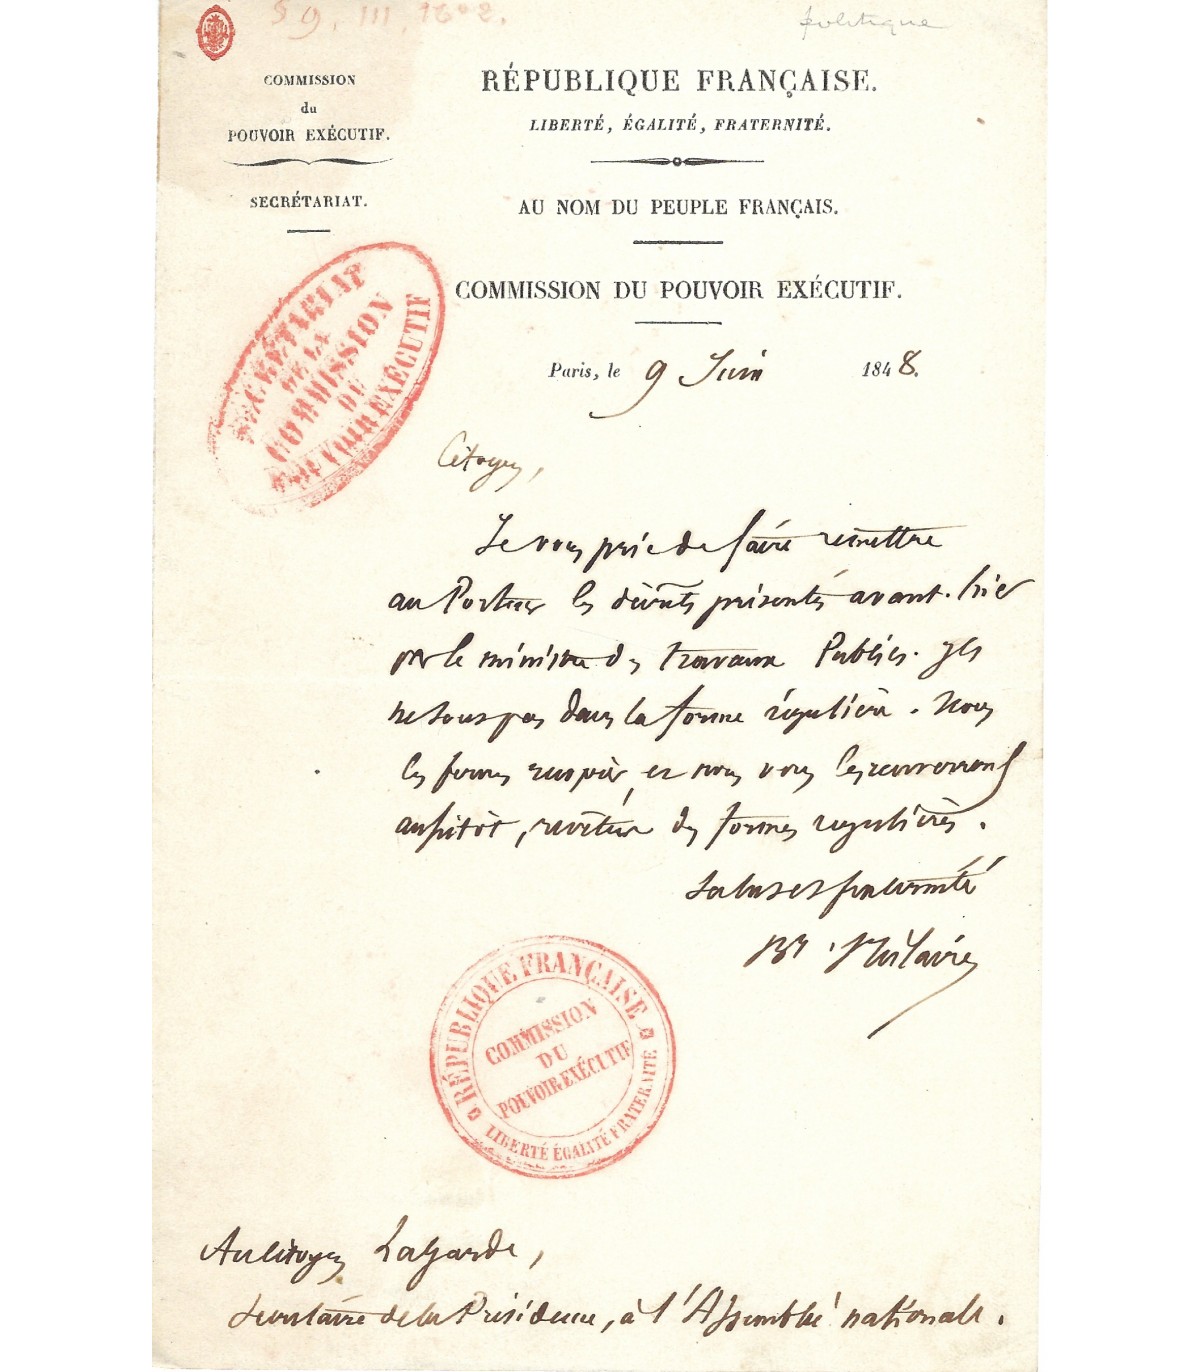 59. III. 1602.
politique
COMMISSION
du
POUVOIR EXÉCUTIF.
SECRÉTARIAT.
RÉPUBLIQUE FRANÇAISE.
LIBERTÉ, ÉGALITÉ, FRATERNITÉ.
AU NOM DU PEUPLE FRANÇAIS.
COMMISSION DU POUVOIR EXÉCUTIF.
SECRÉTARIAT
DE LA
COMMISSION
DU
POUVOIR EXÉCUTIF
Paris, le 9 Juin 1848.
Citoyen,
Je vous prie de faire remettre
au Porteur les décrets présentés avant-hier
par le ministre des travaux Publics. Ils
ne sont pas dans la forme régulière. Nous
les ferons et nous vous les renverrons
aussitôt, revêtus des formes régulières.
Salut et fraternité
Bt. St hilaire
RÉPUBLIQUE FRANÇAISE
COMMISSION
DU
POUVOIR EXÉCUTIF
LIBERTÉ ÉGALITÉ FRATERNITÉ
Au Citoyen Lagarde,
Secrétaire de la Présidence, à l'Assemblée nationale.